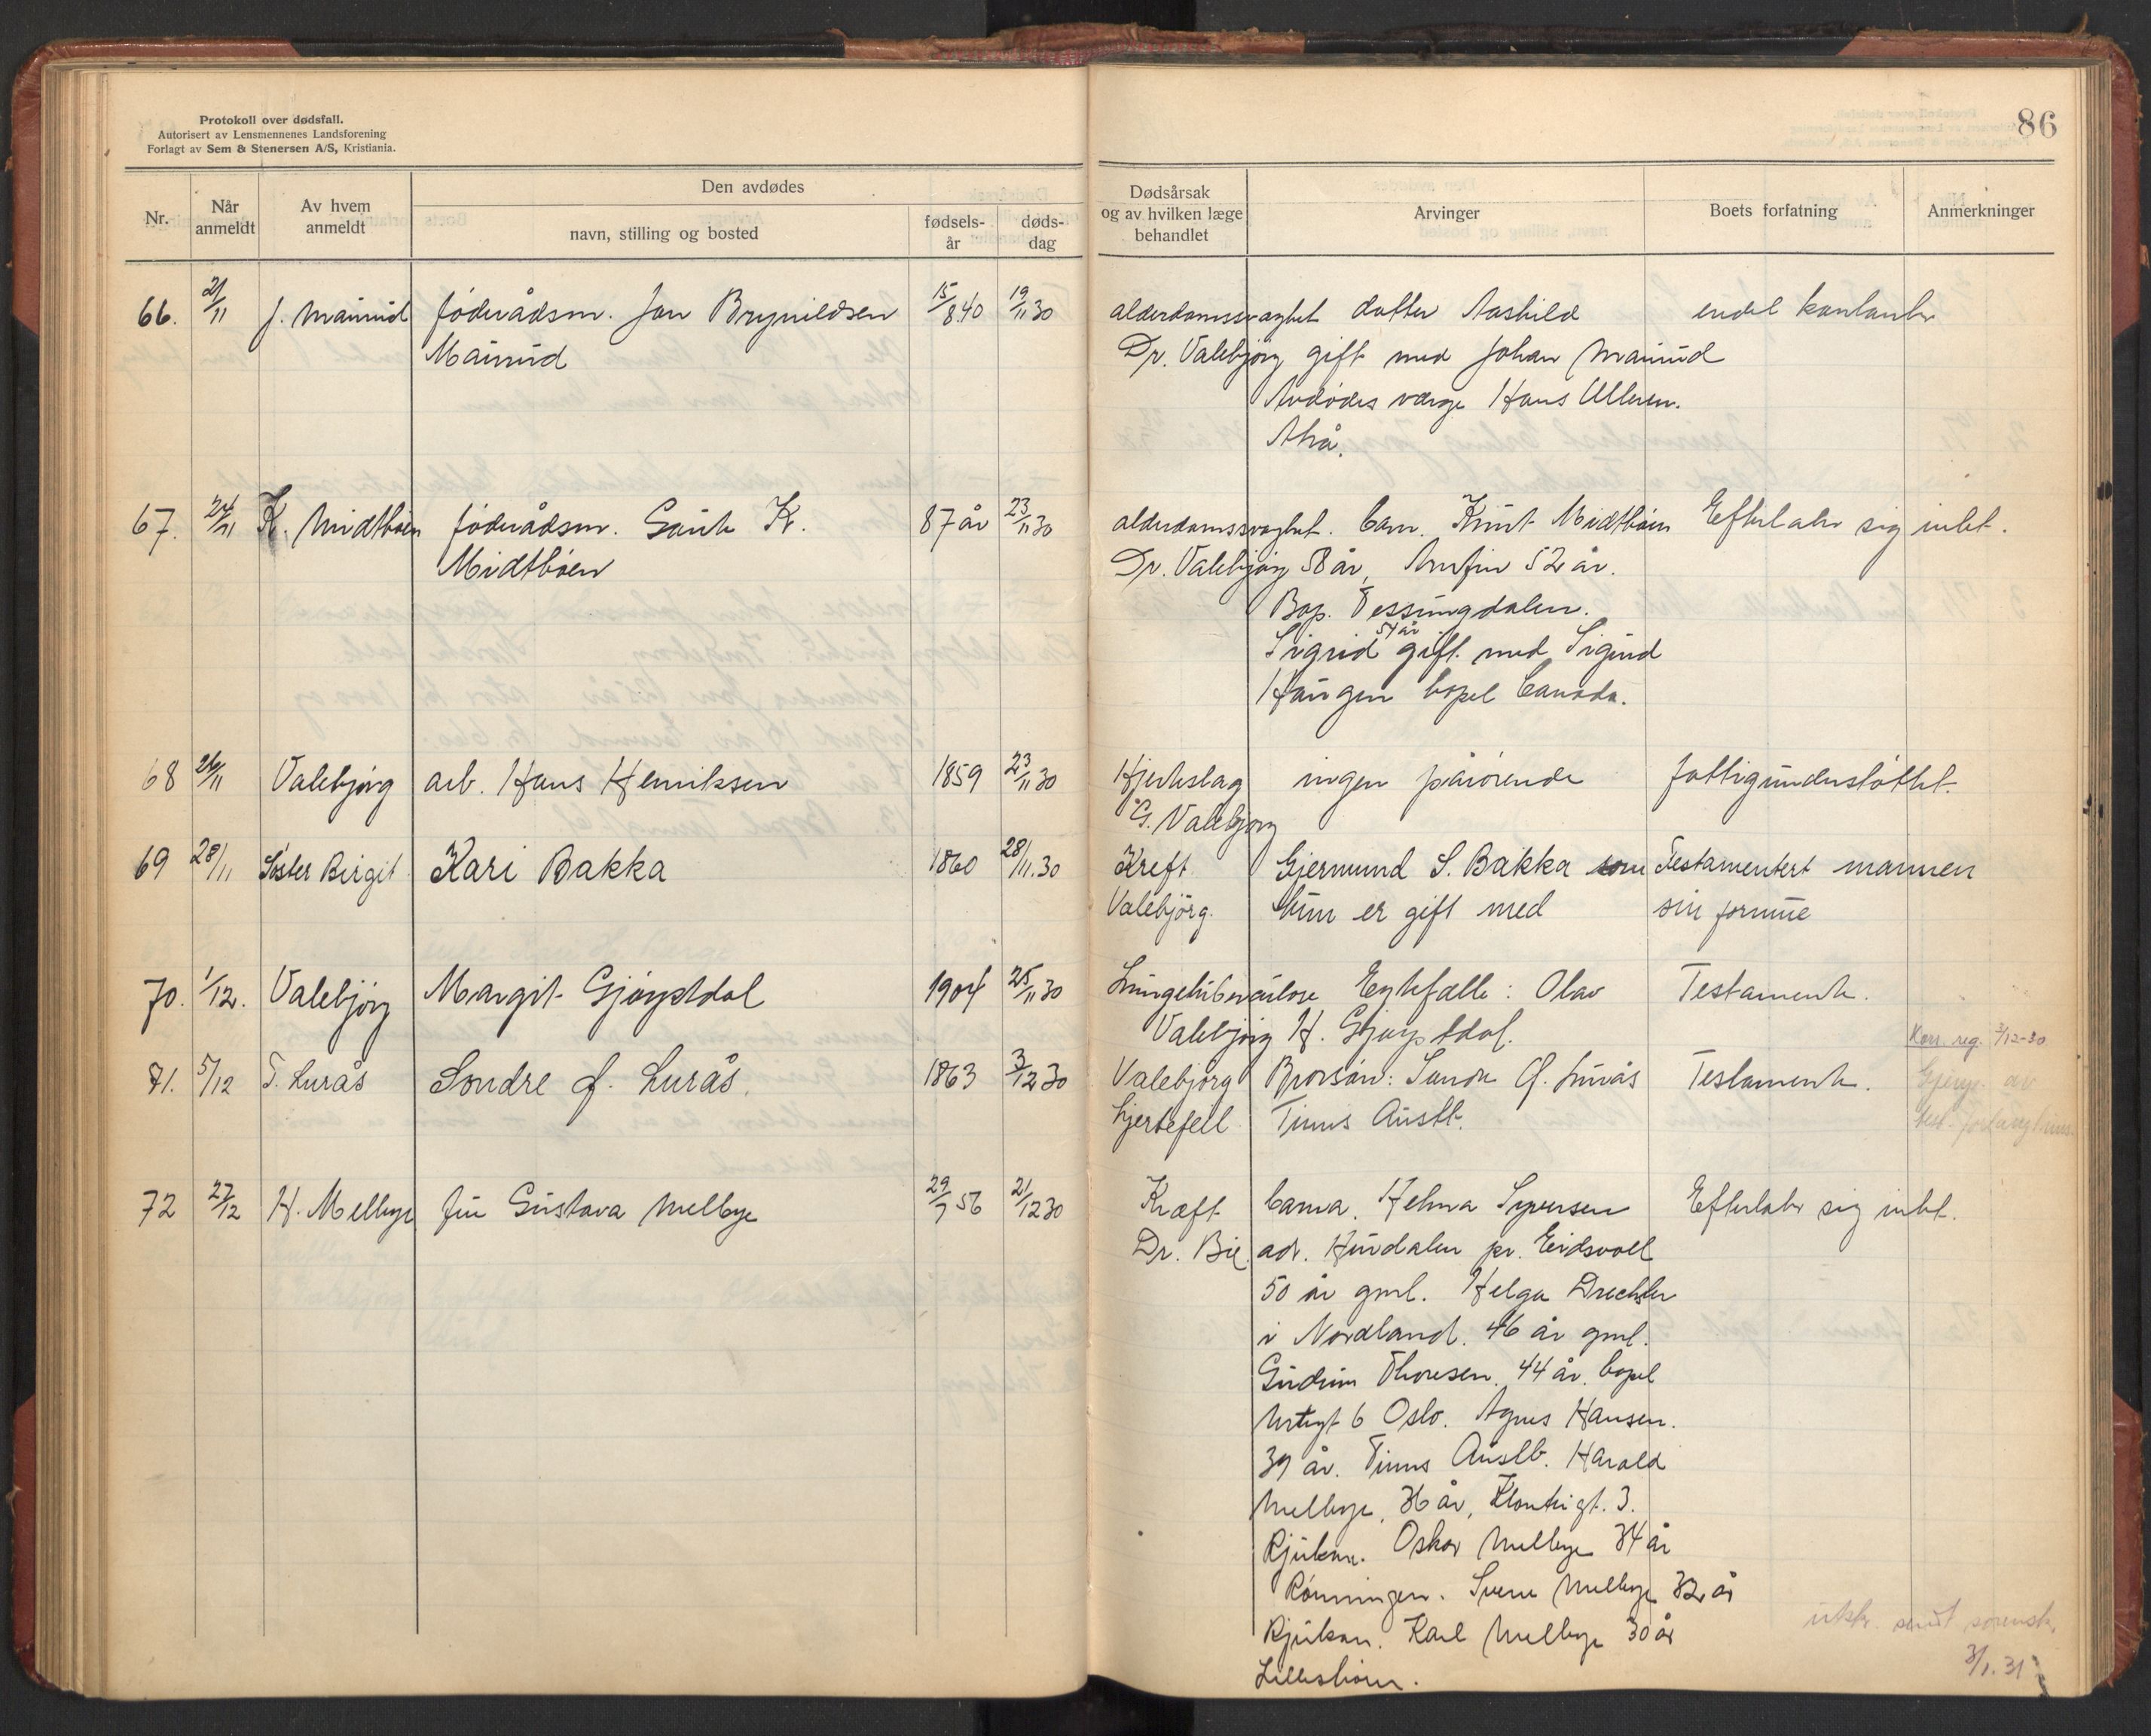 Protokoll over dødsfall.
Autorisert av Lensmennenes Landsforening
Forlagt av Sem & Stenersen A/S, Kristiania.
86
Nr.
Når anmeldt
Av hvem anmeldt
Den avdødes
navn, stilling og bosted
fødsels-år
døds-dag
Dødsårsak og av hvilken læge behandlet
Arvinger
Boets forfatning
Anmerkninger
66. 21/11 J. Maurud føderådsm. Jon Brynildsen 15/8 40 19/11 30 alderdomssvaghet datter Aashild endel kontanter
Maurud Dr. Valebjörg gift med Johan Maurud
Avdödes værge Hans Ulleren.
Atrå.
67. 24/11 K. Midtböen føderådsm. Gaute K. 87 år 23/11 30 alderdomssvaghet. barn. Knut Midtböen Efterlater sig intet.
Midtböen Dr. Valebjörg 58 år, Arnfin 52 år.
Bop. Tessungdalen.
54 år
Sigrid gift med Sigurd
Haugen bopel Canada.
68 26/11 Valebjörg arb. Hans Henriksen 1859 23/11 30 Hjerteslag ingen pårörende fattigunderstöttet.
G. Valebjörg
69 28/11 Söster Birgit Kari Bakka 1860 28/11.30 Kreft Gjermund S. Bakka som Testamentert mannen
Valebjörg. hun er gift med sin formue
70. 1/12. Valebjörg Margit Gjöystdal 1904 25/11 30 Lungetuberkulose Egtefælle: Olav Testamente.
Valebjörg H. Gjöystdal.
Korr. reg. 7/12-30
71. 5/12 T. Lurås Sondre G. Lurås. 1863 3/12 30 Valebjörg Brorsön: Sondre G. Lurås Testamente. Gjenp. av
hjertefeil Tinns Austb. test.
72 27/12 H. Melbye fru Gustava Melbye 29/7 56 21/12 30 Kræft barna. Helma Syversen Efterlater sig intet.
Dr. Bie. adr. Hurdalen pr. Eidsvoll
50 år gml. Helga Drechsler
i Nordland. 46 år gml.
Gudrun Thoresen. 44 år. bopel
6 Oslo. Agnes Hansen.
39 år. Tinns Austb. Harald
Melbye, 36 år, 3.
Rjukan. Oskar Melbye 34 år
Rönningen. Sverre Melbye 32 år
Rjukan. Karl Melbye 30 år
Lilleström.
utskr. sendt sorensk.
3/1. 31